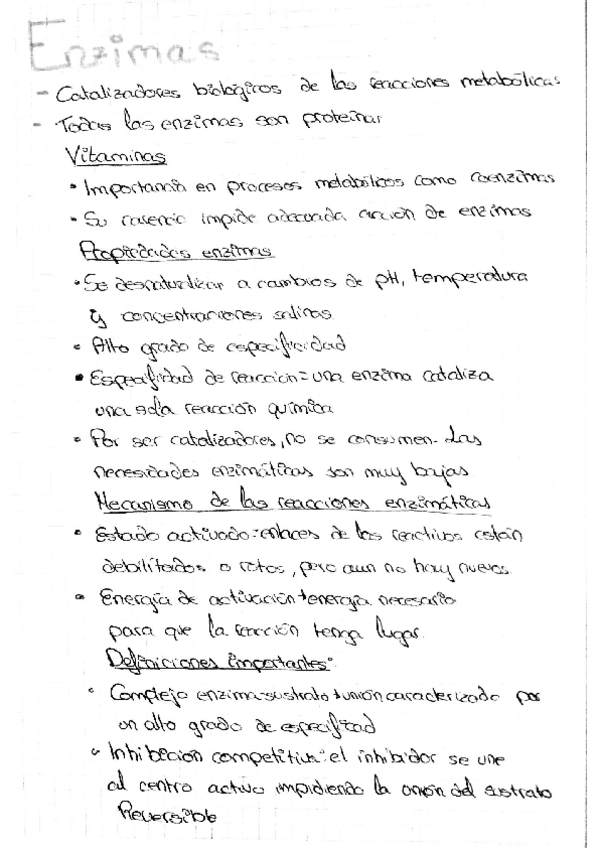 Enzimas
- Catalizadores biológicos de las reacciones metabólicas
- Todas las enzimas son proteinas
Vitaminas
• Importancia en procesos metabólicos como coenzimas
• Su carencia impide adecuada acción de enzimas
Propiedades enzimas
• Se desnaturalizan a cambios de pH, temperatura
y concentraciones salinas
• Alto grado de especificidad
• Especifidad de reacción = una enzima cataliza
una sola reacción química
• Por ser catalizadores, no se consumen. Las
necesidades enzimáticas son muy bajas
Mecanismo de las reacciones enzimáticas
• Estado activado: enlaces de los reactivos están
debilitados o rotos, pero aun no hay nuevos
• Energía de activación: energía necesaria
para que la reacción tenga lugar
Definiciones importantes:
• Complejo enzima-sustrato: unión caracterizado por
un alto grado de especifidad
• Inhibición competitiva: el inhibidor se une
al centro activo impidiendo la unión del sustrato
Reversible